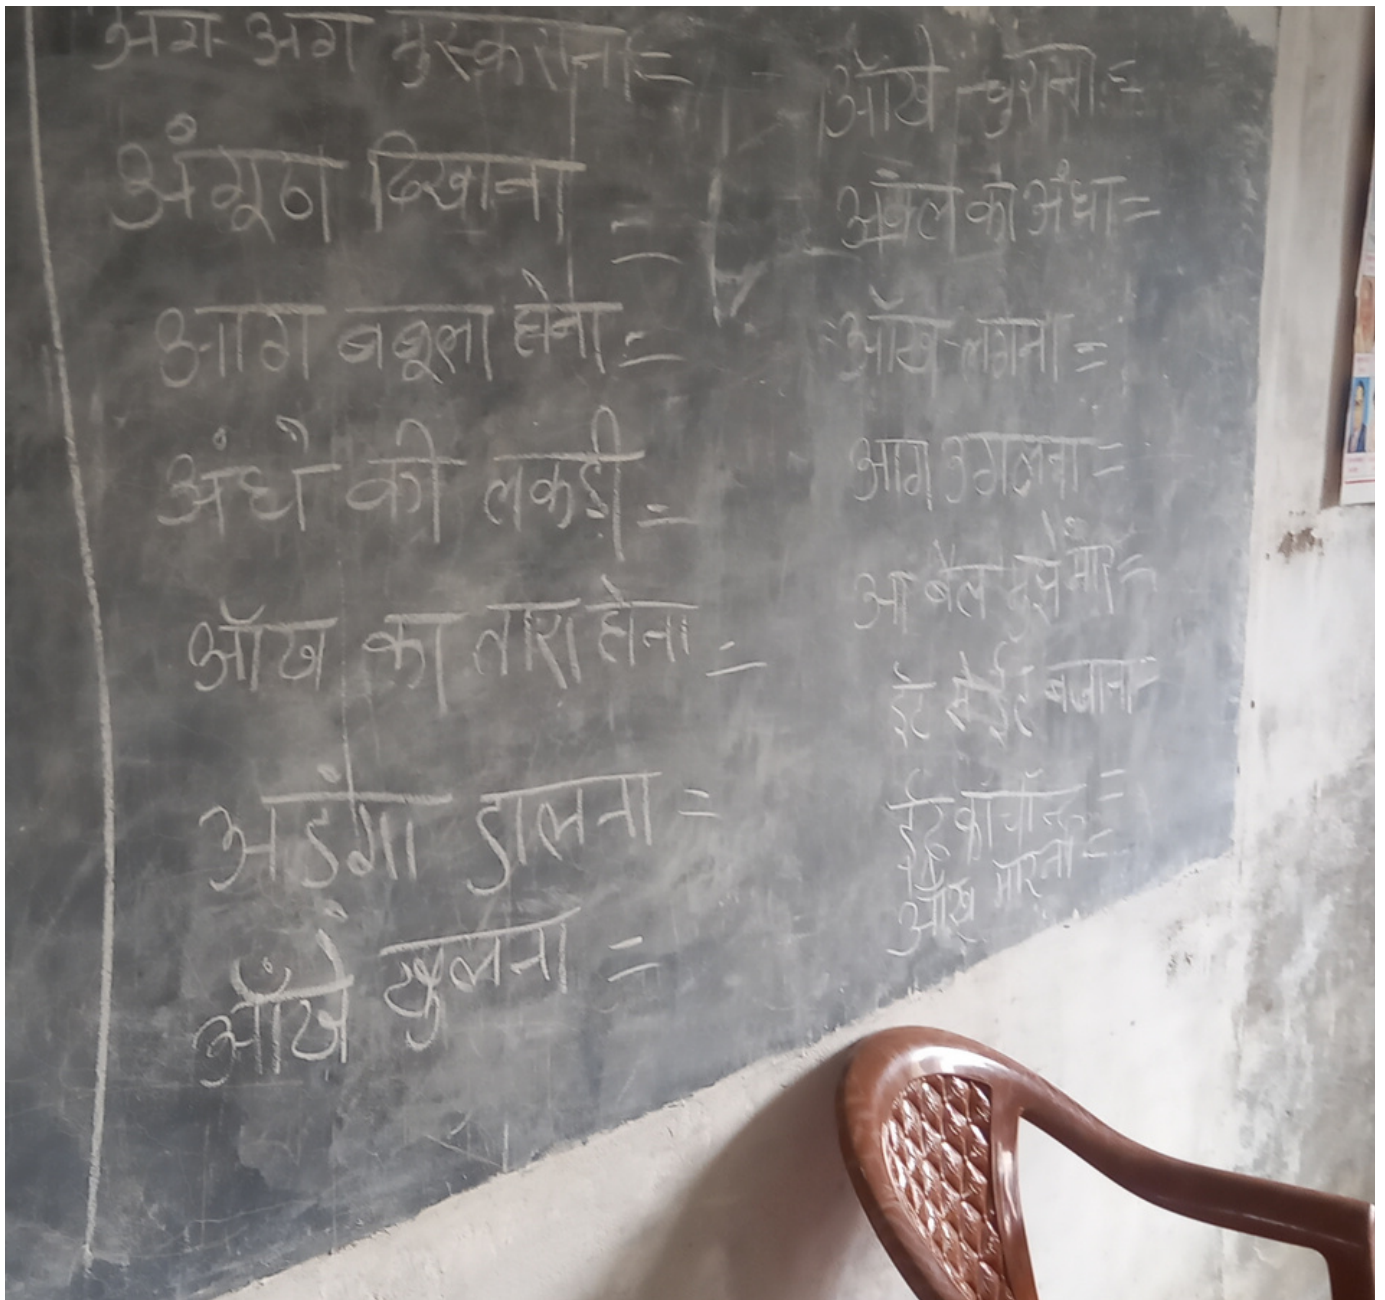 अंग-अंग मुस्कराना =
अंगूठा दिखाना =
आग बबूला होना =
अंधे की लकड़ी =
आँख का तारा होना =
अडंगा डालना =
आँखे खुलना =
आँखे चुराना =
अक्ल का अंधा =
आँख लगना =
आग उगलना =
आ बैल मुझे मार =
ईट से ईट बजाना =
ईद का चाँद =
आँख मारना =